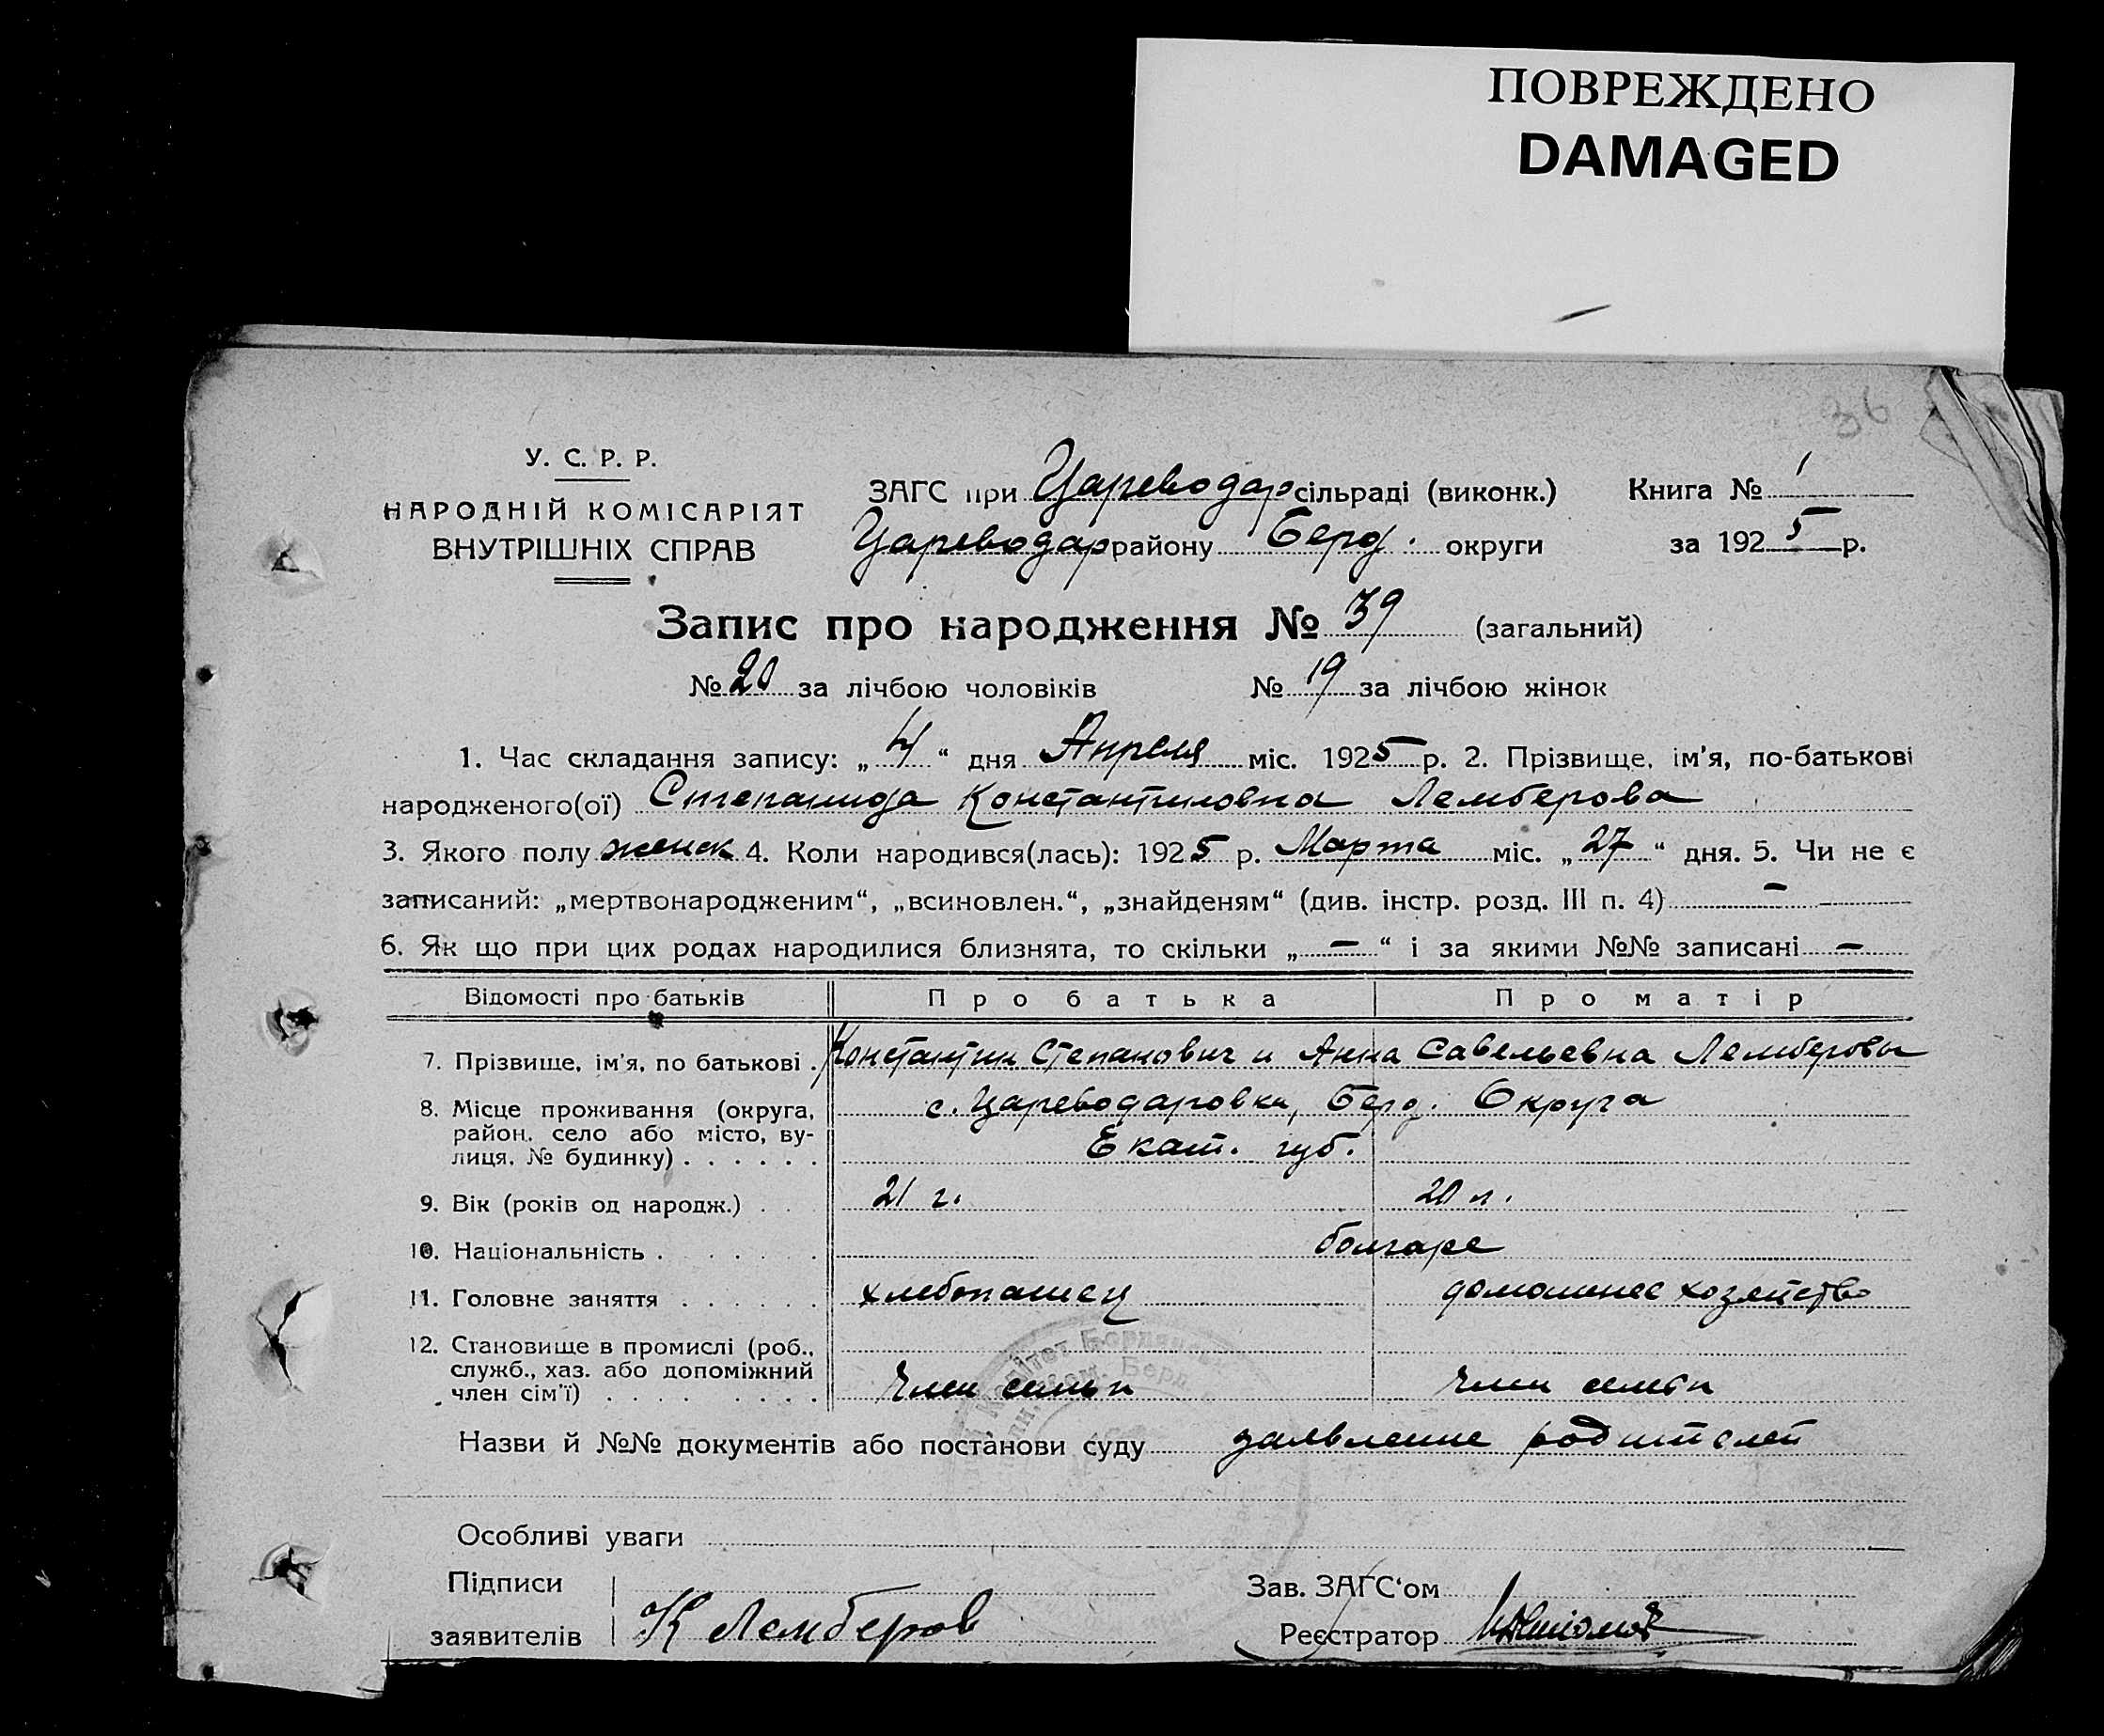 ПОВРЕЖДЕНО
DAMAGED
36
У. С. Р. Р.
НАРОДНІЙ КОМІСАРІЯТ
ВНУТРІШНІХ СПРАВ
ЗАГС при Цареводар сільраді (виконк.) Книга № 1
Цареводар району Берд. округи за 1925 р.
Запис про народження № 39 (загальний)
№ 20 за лічбою чоловіків № 19 за лічбою жінок
1. Час складання запису: „4“ дня Апреля міс. 1925 р. 2. Прізвище, ім'я, по-батькові
народженого(ої) Степанида Константиновна Лемберова
3. Якого полу женск 4. Коли народився(лась): 1925 р. Марта міс. „27“ дня. 5. Чи не є
записаний: „мертвонародженим“, „всиновлен.“, „знайденям“ (див. інстр. розд. III п. 4) —
6. Як що при цих родах народилися близнята, то скільки „—“ і за якими №№ записані —
Відомості про батьків Про батька Про матір
7. Прізвище, ім'я, по батькові . Константин Степанович и Анна Савельевна Лемберовы
8. Місце проживання (округа, с. Цареводаровки, Берд. Округа
район. село або місто, ву-
лиця, № будинку) . . . . . . Екат. губ.
9. Вік (років од народж.) . . . 21 г. 20 л.
10. Національність . . . . . . болгаре
11. Головне заняття . . . . . . хлебопашец домашнее хозяйство
12. Становище в промислі (роб.,
служб., хаз. або допоміжний
член сім'ї) . . . . . . . . Член семьи Член семьи
Назви й №№ документів або постанови суду заявление родителей
Особливі уваги
Підписи Зав. ЗАГС‘ом
заявителів К Лемберов Реєстратор